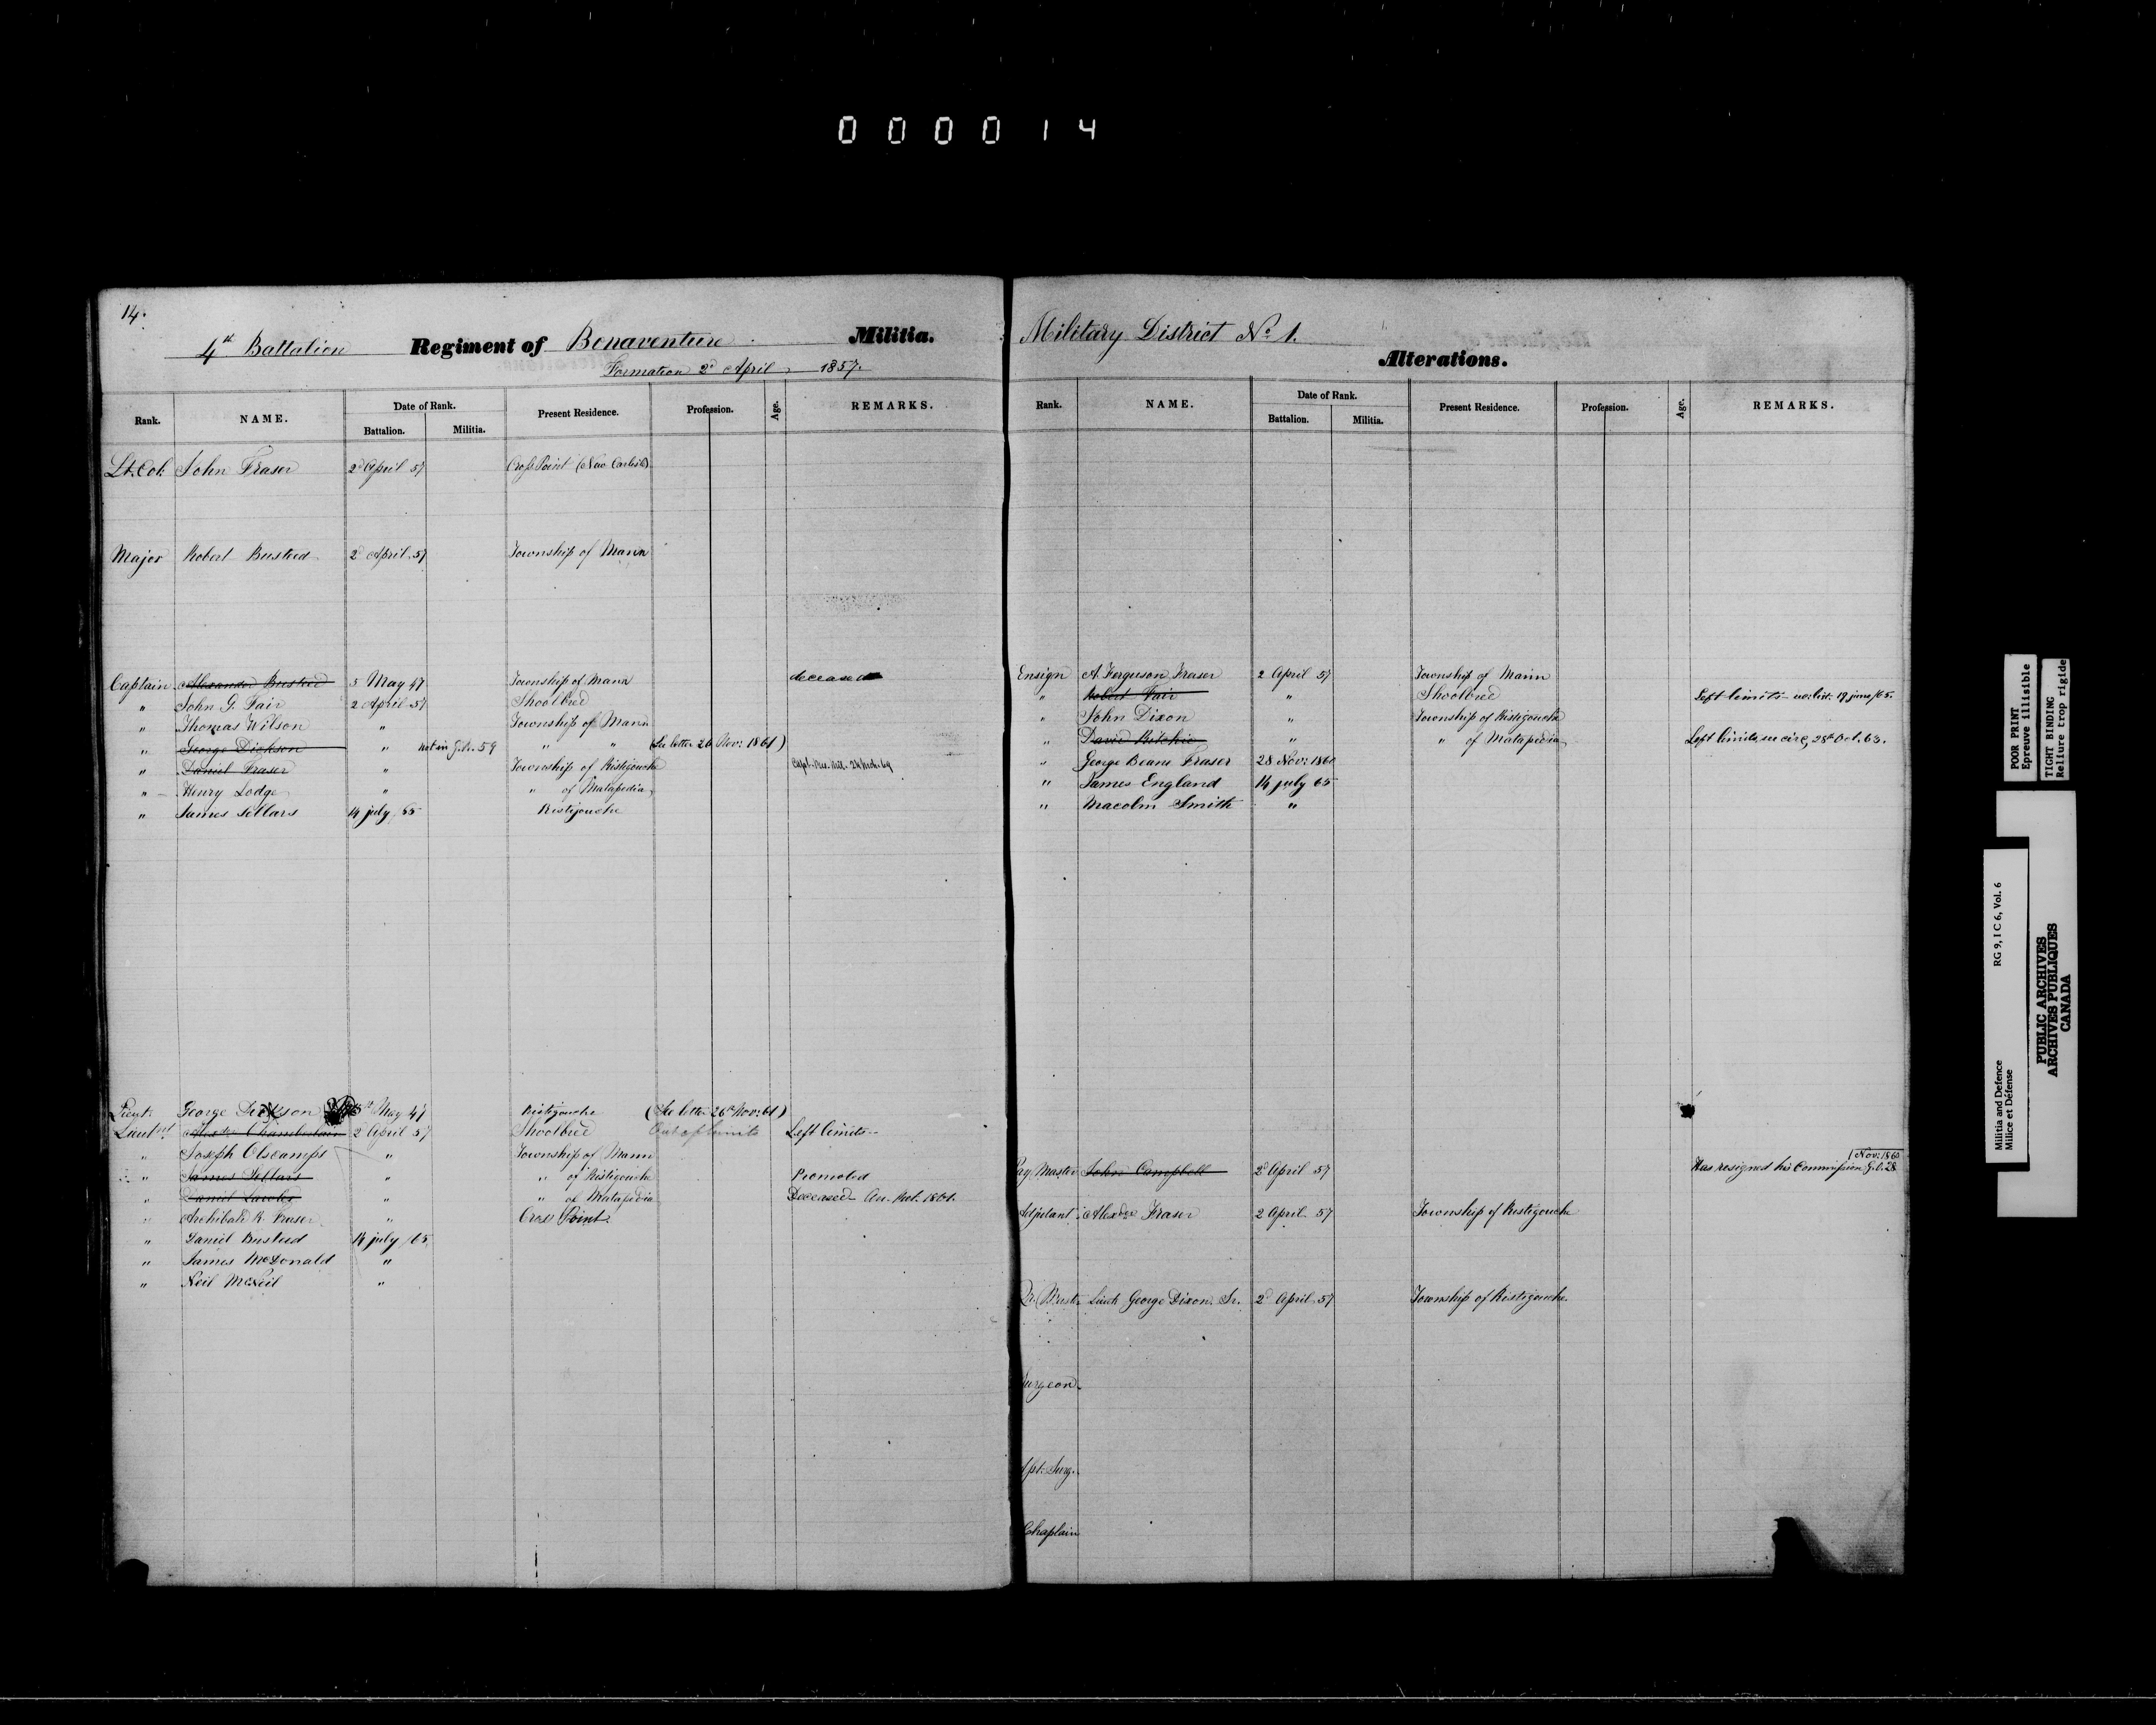 000014
14.
4th Battalion Regiment of Bonaventure Militia.
Formation 2d April 1857.
Rank. NAME. Date of Rank. Battalion. Militia. Present Residence. Profession. Age. REMARKS.
Lt. Col. John Fraser 2d April 57 Cross Point (New Carlisle)
Major Robert Busteed 2d April 57 Township of Mann
Captain Alexander Busteed 5 May 47 Township of Mann deceased
" John G. Fair 2 April 57 Shoolbred
" Thomas Wilson " Township of Mann
" George Dickson " not in G.O. 59 " " (See letter 26 Nov: 1861)
" Daniel Fraser " Township of Ristigouche
" Henry Lodge " " of Matapedia
" James Sellars 14 july /65 Ristigouche
Lieut. George Dickson May 47 Ristigouche (See letter 26th Nov: 61)
Lieutnt Alexdr Chamberlain 2 April 57 Shoolbred Out of limits Left limits
" Joseph Olscamps " Township of Mann
" James Sellars " " of Ristigouche Promoted
" Daniel Lawlor " " of Matapedia Deceased 1861.
" Archibald R. Fraser " Cross Point
" Daniel Busteed 14 july /65
" James McDonald "
" Neil McNeil "
Military District No. 1.
Alterations.
Rank. NAME. Date of Rank. Battalion. Militia. Present Residence. Profession. Age. REMARKS.
Ensign A. Ferguson Fraser 2 April 57 Township of Mann
" Robert Fair " Shoolbred Left limits 19 june /65.
" John Dixon " Township of Ristigouche
" David Ritchie " " of Matapedia Left limits 28th Oct. 63.
" George Deane Fraser 28 Nov: 1860
" James England 14 july 65
" Macolm Smith "
Pay Master John Campbell 2d April 57 Has resigned his Commission G.O. 28 1 Nov: 1860
Adjutant Alexdre Fraser 2 April 57 Township of Ristigouche
Qr. Mastr Lieut George Dixon Sr. 2d April 57 Township of Ristigouche
Surgeon.
Asst. Surg.
Chaplain
POOR PRINT
Epreuve illisible
TIGHT BINDING
Reliure trop rigide
Militia and Defence RG 9, I C 6, Vol. 6
Milice et Défense
PUBLIC ARCHIVES
ARCHIVES PUBLIQUES
CANADA